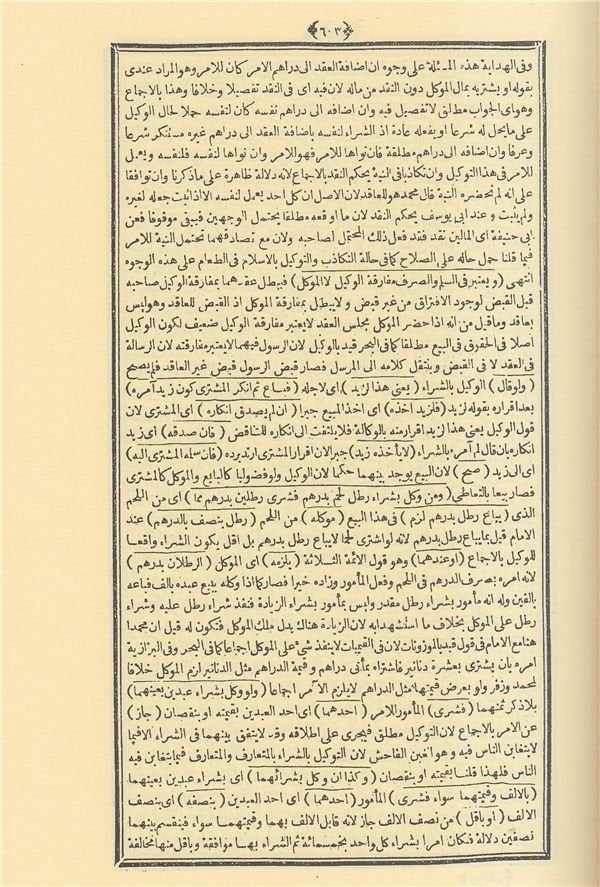 ﴿٦٠٣﴾
وفى الهداية هذه المسئلة على وجوه ان اضافة العقد الى دراهم الامر كان للامر وهو المراد عندى
بقوله او يشتريه بمال الموكل دون النقد من ماله لان فيه اى فى النقد تفصيلا وخلافا وهذا بالاجماع
وهو اى الجواب مطلق لا تفصيل فيه وان اضافه الى دراهم نفسه كان لنفسه حملا لحال الوكيل
على ما يحل له شرعا او يفعله عادة اذ الشراء لنفسه باضافة العقد الى دراهم غيره مستنكر شرعا
وعرفا وان اضافه الى دراهم مطلقة فان نواها للامر فهو للامر وان نواها لنفسه فلنفسه ويعمل
للامر فى هذا التوكيل وان تكاذبا فى النية يحكم النقد بالاجماع لانه دلالة ظاهرة على ما ذكرنا وان توافقا
على انه لم تحضره النية قال محمد هو للعاقد لان الاصل ان كل احد يعمل لنفسه الا اذا ثبت جعله لغيره
ولم يثبت وعند ابى يوسف يحكم النقد لان ما اوقعه مطلقا يحتمل الوجهين فيبقى موقوفا فمن
اى المالين نقد فقد فعل ذلك المحتمل لصاحبه ولان مع تصادقهما تحتمل النية للامر
فيما قلنا حمل حاله على الصلاح كما فى حالة التكاذب والتوكيل بالاسلام فى الطعام على هذه الوجوه
انتهى (ويعتبر فى السلم والصرف مفارقة الوكيل لا الموكل) فيبطل عقدهما بمفارقة الوكيل صاحبه
قبل القبض لوجود الافتراق من غير قبض ولا يبطل بمفارقة الموكل اذ القبض للعاقد وهو ليس
بعاقد وما قيل من انه اذا حضر الموكل مجلس العقد لا يعتبر مفارقة الوكيل ضعيف لكون الوكيل
اصلا فى الحقوق فى البيع مطلقا كما فى البحر قيد بالوكيل لان الرسول فيهما لا يعتبر مفارقته لان الرسالة
فى العقد لا فى القبض وينتقل كلامه الى المرسل فصار قبض الرسول قبض غير العاقد فلم يصح
(ولو قال) الوكيل بالشراء (بعنى هذا لزيد) اى لاجله (فباع ثم انكر المشترى كون زيد آمره)
بعد اقراره بقوله لزيد (فلزيد اخذه) اى اخذ المبيع جبرا (ان لم يصدق انكاره) اى المشترى لان
قول الوكيل بعنى هذا لزيد اقرار منه بالوكالة فلا يلتفت الى انكاره للتناقض (فان صدقه) اى زيد
انكاره بان قال لم آمره بالشراء (لا يأخذه زيد) جبرا لان اقرار المشترى ارتد برده (فان سلمه المشترى اليه)
اى الى زيد (صح) لان البيع يوجد بينهما حكما لان الوكيل ولو فضوليا كالبايع والموكل كالمشترى
فصار بيعا بالتعاطى (ومن وكل بشراء رطل لحم بدرهم فشرى رطلين بدرهم مما) اى من اللحم
الذى (يباع رطل بدرهم لزم) فى هذا البيع (موكله) من اللحم (رطل بنصف بالدرهم) عند
الامام قيل بما يباع رطل بدرهم لانه لو اشترى لحما لا يباع رطل بدرهم بل اقل يكون الشراء واقعا
للوكيل بالاجماع (وعندهما) وهو قول الائمة الثلاثة (يلزمه) اى الموكل (الرطلان بدرهم)
لانه امره بصرف الدرهم فى اللحم وفعل المأمور وزاده خيرا فصار كما اذا وكله ببيع عبده بالف فباعه
بالفين وله انه مأمور بشراء رطل مقدر وليس بمأمور بشراء الزيادة فنفذ شراء رطل عليه وشراء
رطل على الموكل بخلاف ما استشهدا به لان الزيادة هناك بدل ملك الموكل فتكون له قيل ان محمدا
هنا مع الامام فى قول قيد بالموزونات لان فى القيميات لا ينفذ شئ على الموكل اجماعا كما فى البحر وفى البزازية
امره بان يشترى بعشرة دنانير فاشتراه بمأتى دراهم وقيمة الدراهم مثل الدنانير لزم الموكل خلافا
لمحمد وزفر ولو بعرض قيمتها مثل الدراهم لا يلزم الآمر اجماعا (ولو وكل بشراء عبدين بعينهما)
بلا ذكر ثمنهما (فشرى) المأمور للامر (احدهما) اى احد العبدين بقيمته او بنقصان (جاز)
عن الامر بالاجماع لان التوكيل مطلق فيجرى على اطلاقه وقد لا يتفق بينهما فى الشراء الا فيما
لا يتغابن الناس فيه وهو الغبن الفاحش لان التوكيل بالشراء بالمتعارف والمتعارف فيما يتغابن فيه
الناس فلهذا قلنا بقيمته او بنقصان (وكذا ان وكل بشرائهما) اى بشراء عبدين بعينهما
(بالالف وقيمتهما سواء فشرى) المأمور (احدهما) اى احد العبدين (بنصفه) اى بنصف
الالف (او باقل) من نصف الالف جاز لانه قابل الالف بهما وقيمتهما سواء فينقسم بينهما
نصفين دلالة فكان امرا بشراء كل واحد بخمسمائة ثم الشراء بها موافقة وباقل منها مخالفة